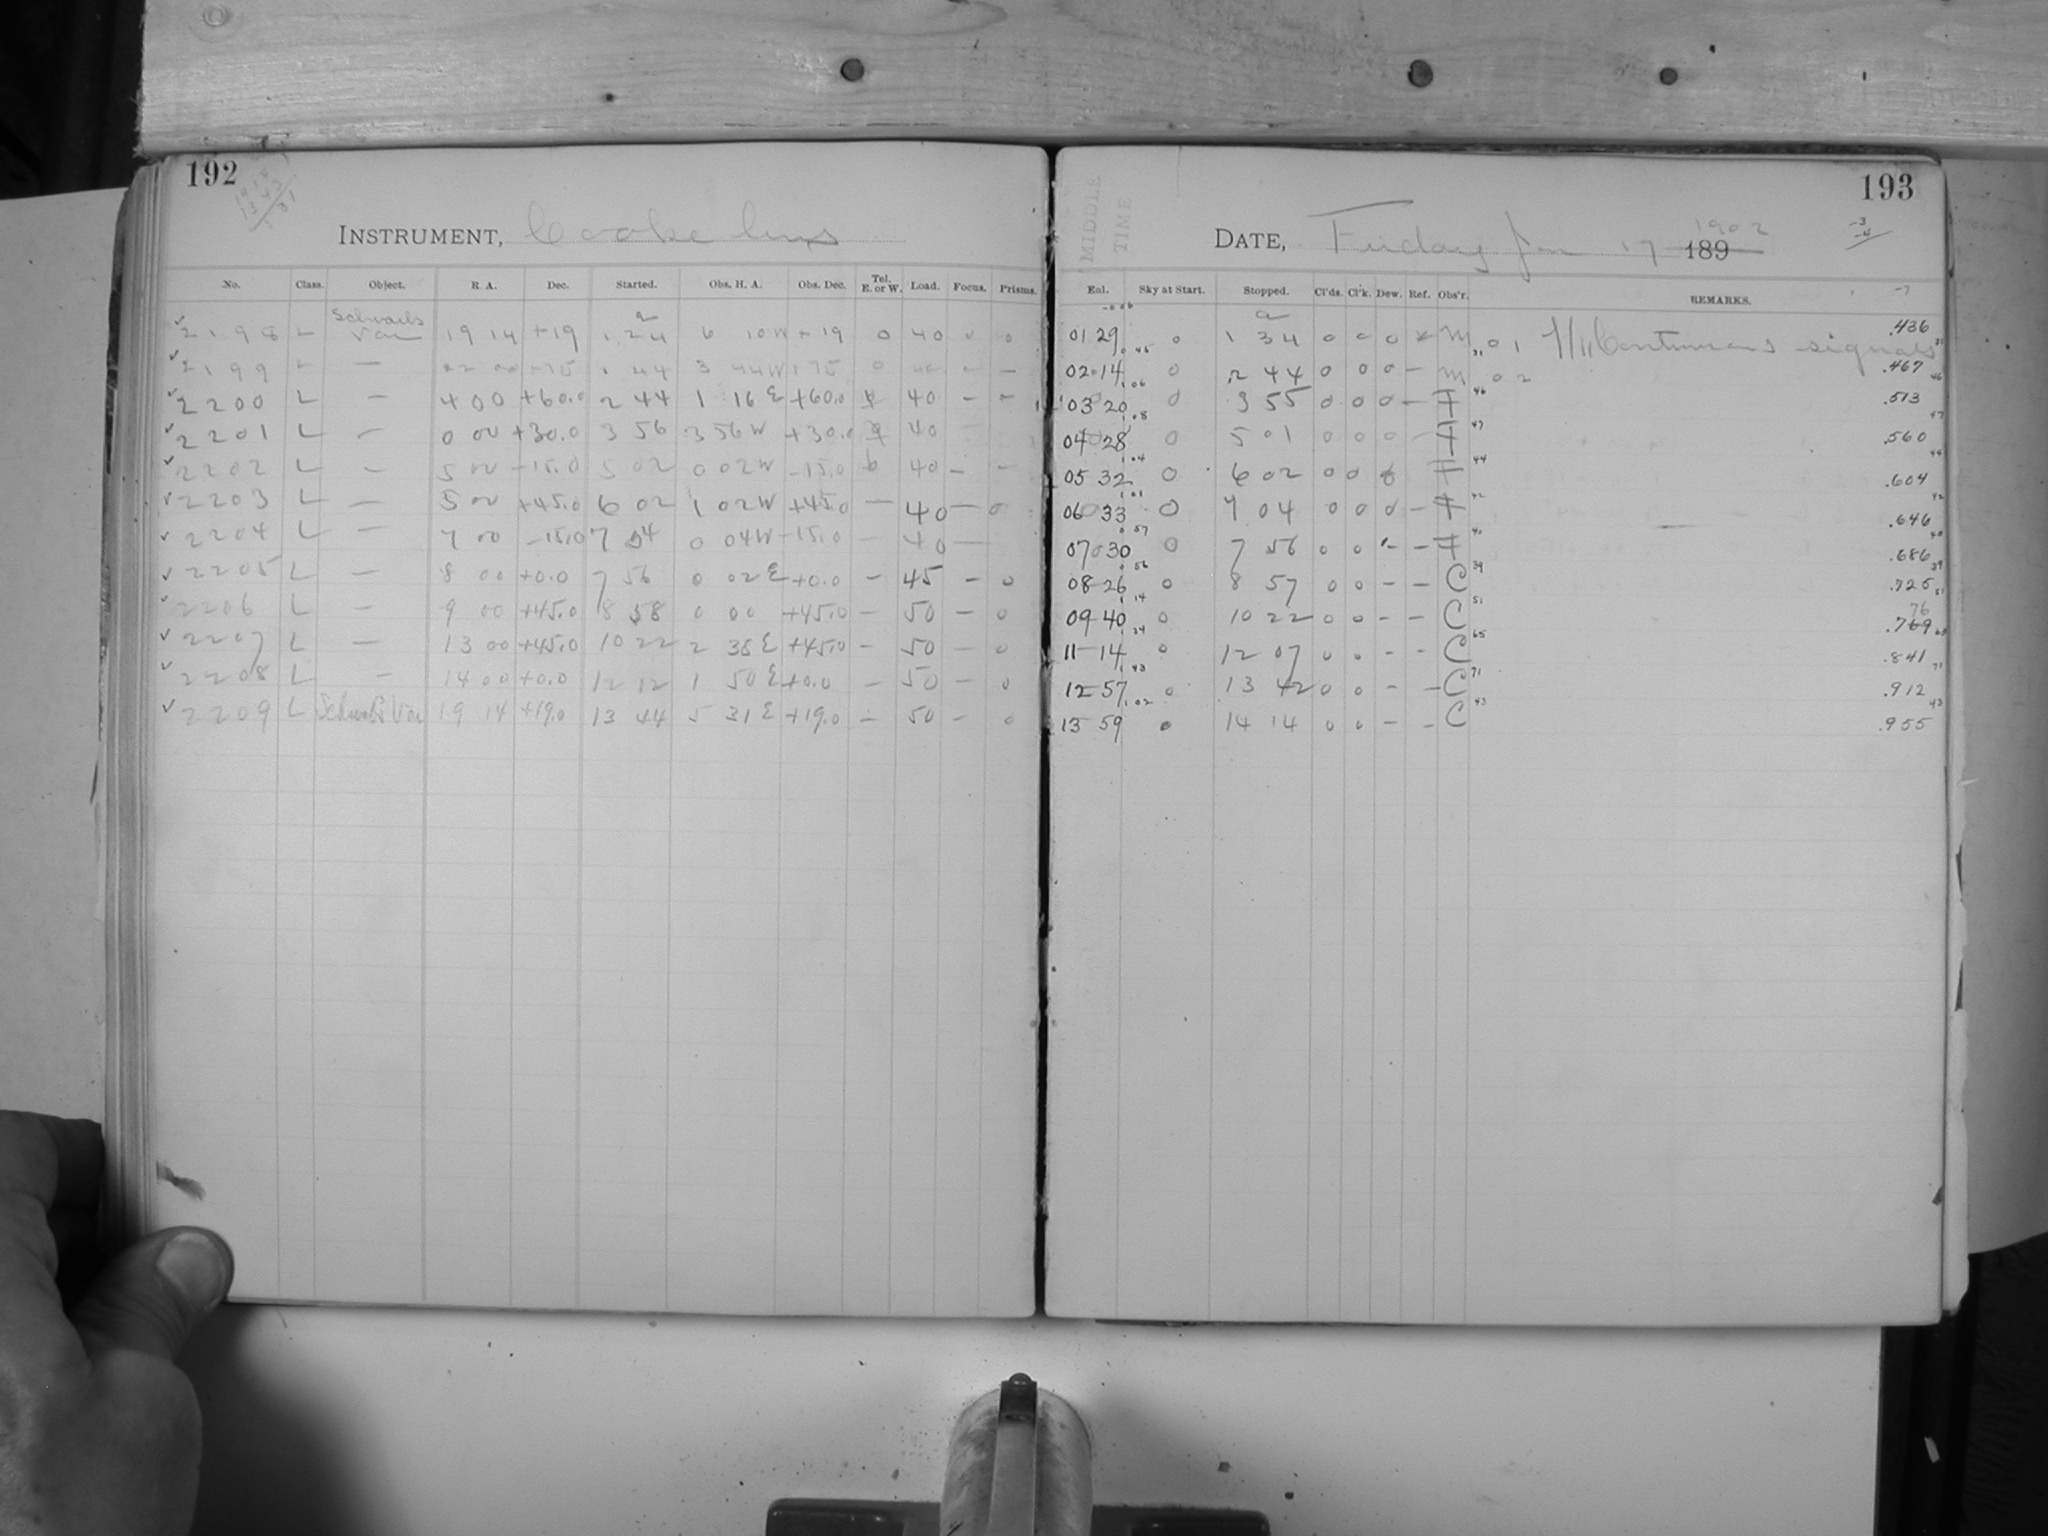 192
INSTRUMENT, Cooke lens
No. Class. Object. R. A. Dec. Started. Obs. H. A. Obs. Dec. Tel. E. or W. Load. Focus. Prisms.
2198 L Schwab's Var 19 14 +19 1 24 6 10W +19 0 40 0 0
2199 L — +75 1 44 3 44W +75 0 40 — —
2200 L — 4 00 +60.0 2 44 1 16E +60.0 40 — —
2201 L — 0 00 +30.0 3 56 3 56W +30.0 40
2202 L — 5 00 -15.0 5 02 0 02W -15.0 40 — —
2203 L — 5 00 +45.0 6 02 1 02W +45.0 — 40 — 0
2204 L — 7 00 -15.0 7 04 0 04W -15.0 — 40 —
2205 L — 8 00 +0.0 7 56 0 02E +0.0 — 45 — 0
2206 L — 9 00 +45.0 8 58 0 00 +45.0 — 50 — 0
2207 L — 13 00 +45.0 10 22 2 38E +45.0 — 50 — 0
2208 L — 14 00 +0.0 12 12 1 50E +0.0 — 50 — 0
2209 L Schwab's Var 19 14 +19.0 13 44 5 31E +19.0 — 50 — 0
193
MIDDLE TIME
DATE, Friday Jan 17 1902 189
-3 -4
Eol. Sky at Start. Stopped. Cl'ds. Cl'k. Dew. Ref. Obs'r. REMARKS. -7
01 29 0 1 34 0 0 0 M 01 Continuous signals .436
02 14 0 2 44 0 0 0 — M 02 .467
03 20 0 3 55 0 0 0 — F .513
04 28 0 5 01 0 0 0 — F .560
05 32 0 6 02 0 0 F .604
06 33 0 7 04 0 0 0 — F .646
07 30 0 7 56 0 0 — — F .686
08 26 0 8 57 0 0 — — C .725
09 40 0 10 22 0 0 — — C .769 76
11 14 0 12 07 0 0 — — C .841
12 57 0 13 42 0 0 — — C .912
13 59 0 14 14 0 0 — — C .955